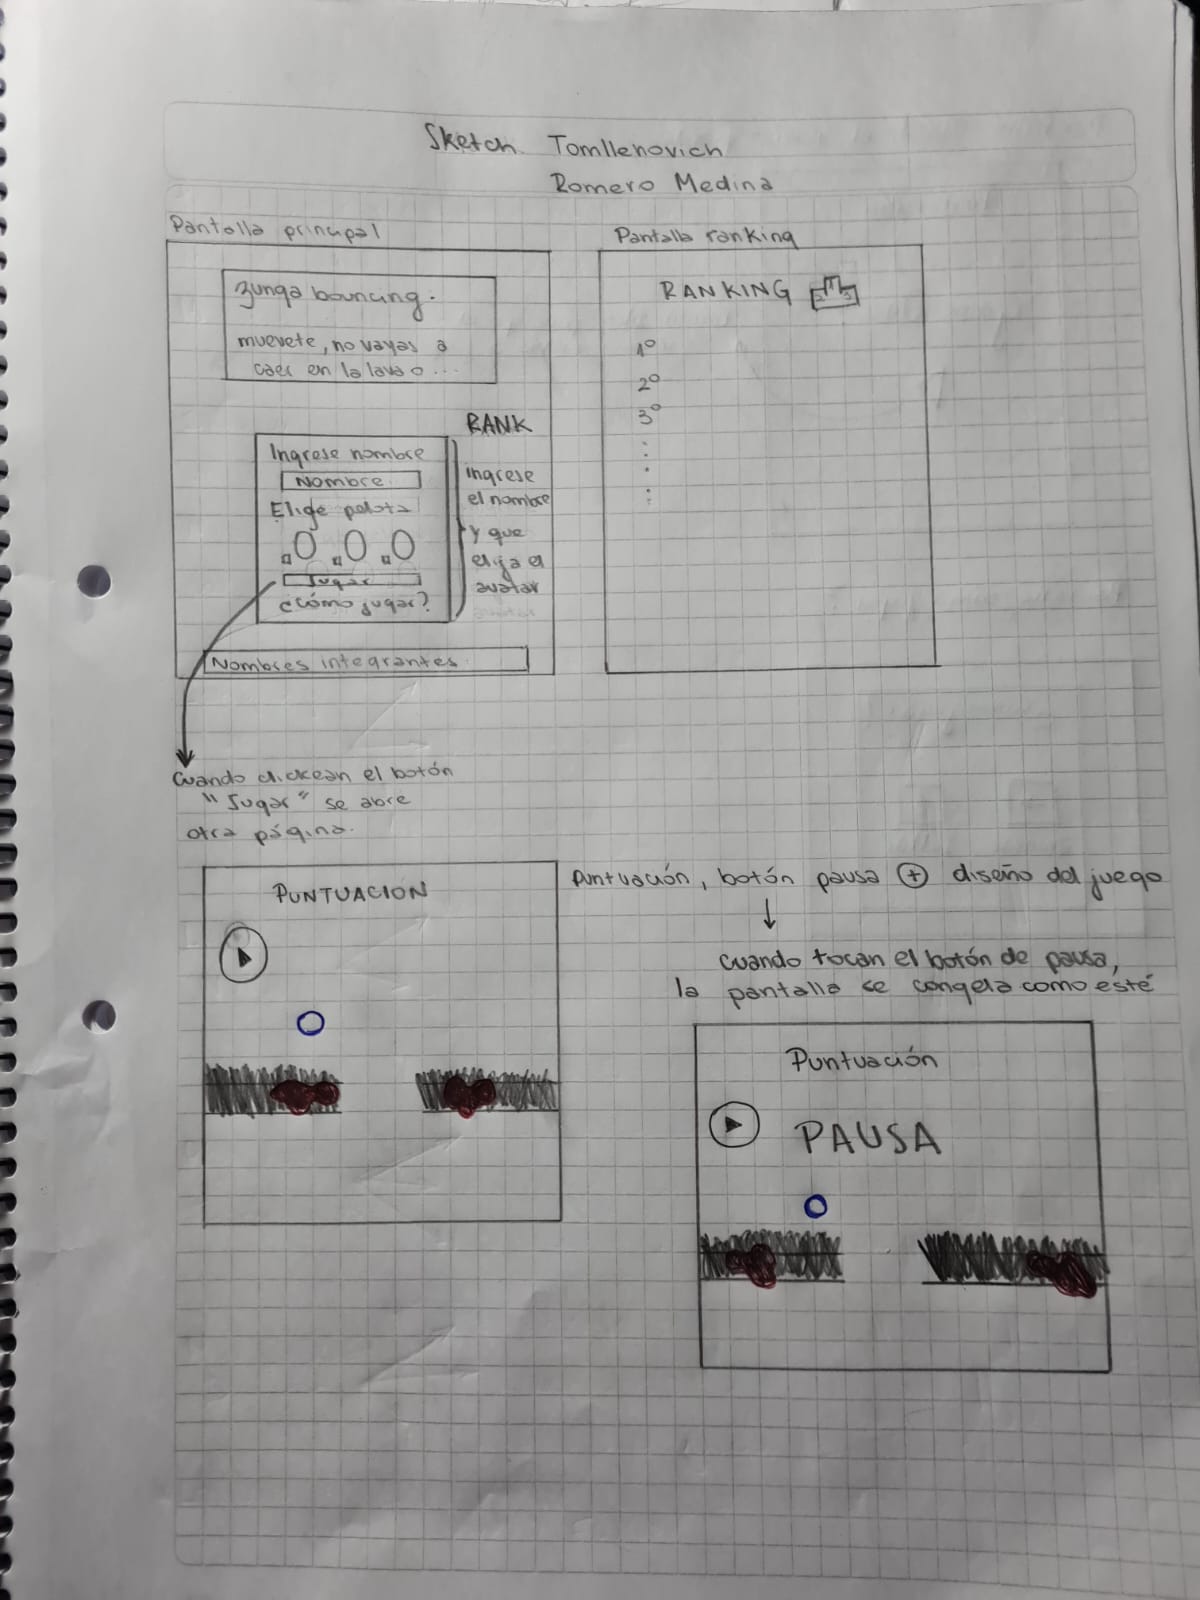 Sketch. Tomllenovich
Romero Medina
Pantalla principal
zunga bouncing.
muevete, no vayas a
caer en la lava o...
RANK
Ingrese nombre
Nombre
Elige pelota
Jugar
¿Cómo jugar?
ingrese
el nombre
y que
elija el
avatar
Nombres integrantes
Pantalla ranking
RANKING
1º
2º
3º
Cuando clickean el botón
"Jugar" se abre
otra página.
PUNTUACION
Puntuación, botón pausa + diseño del juego
cuando tocan el botón de pausa,
la pantalla se congela como esté
Puntuación
PAUSA